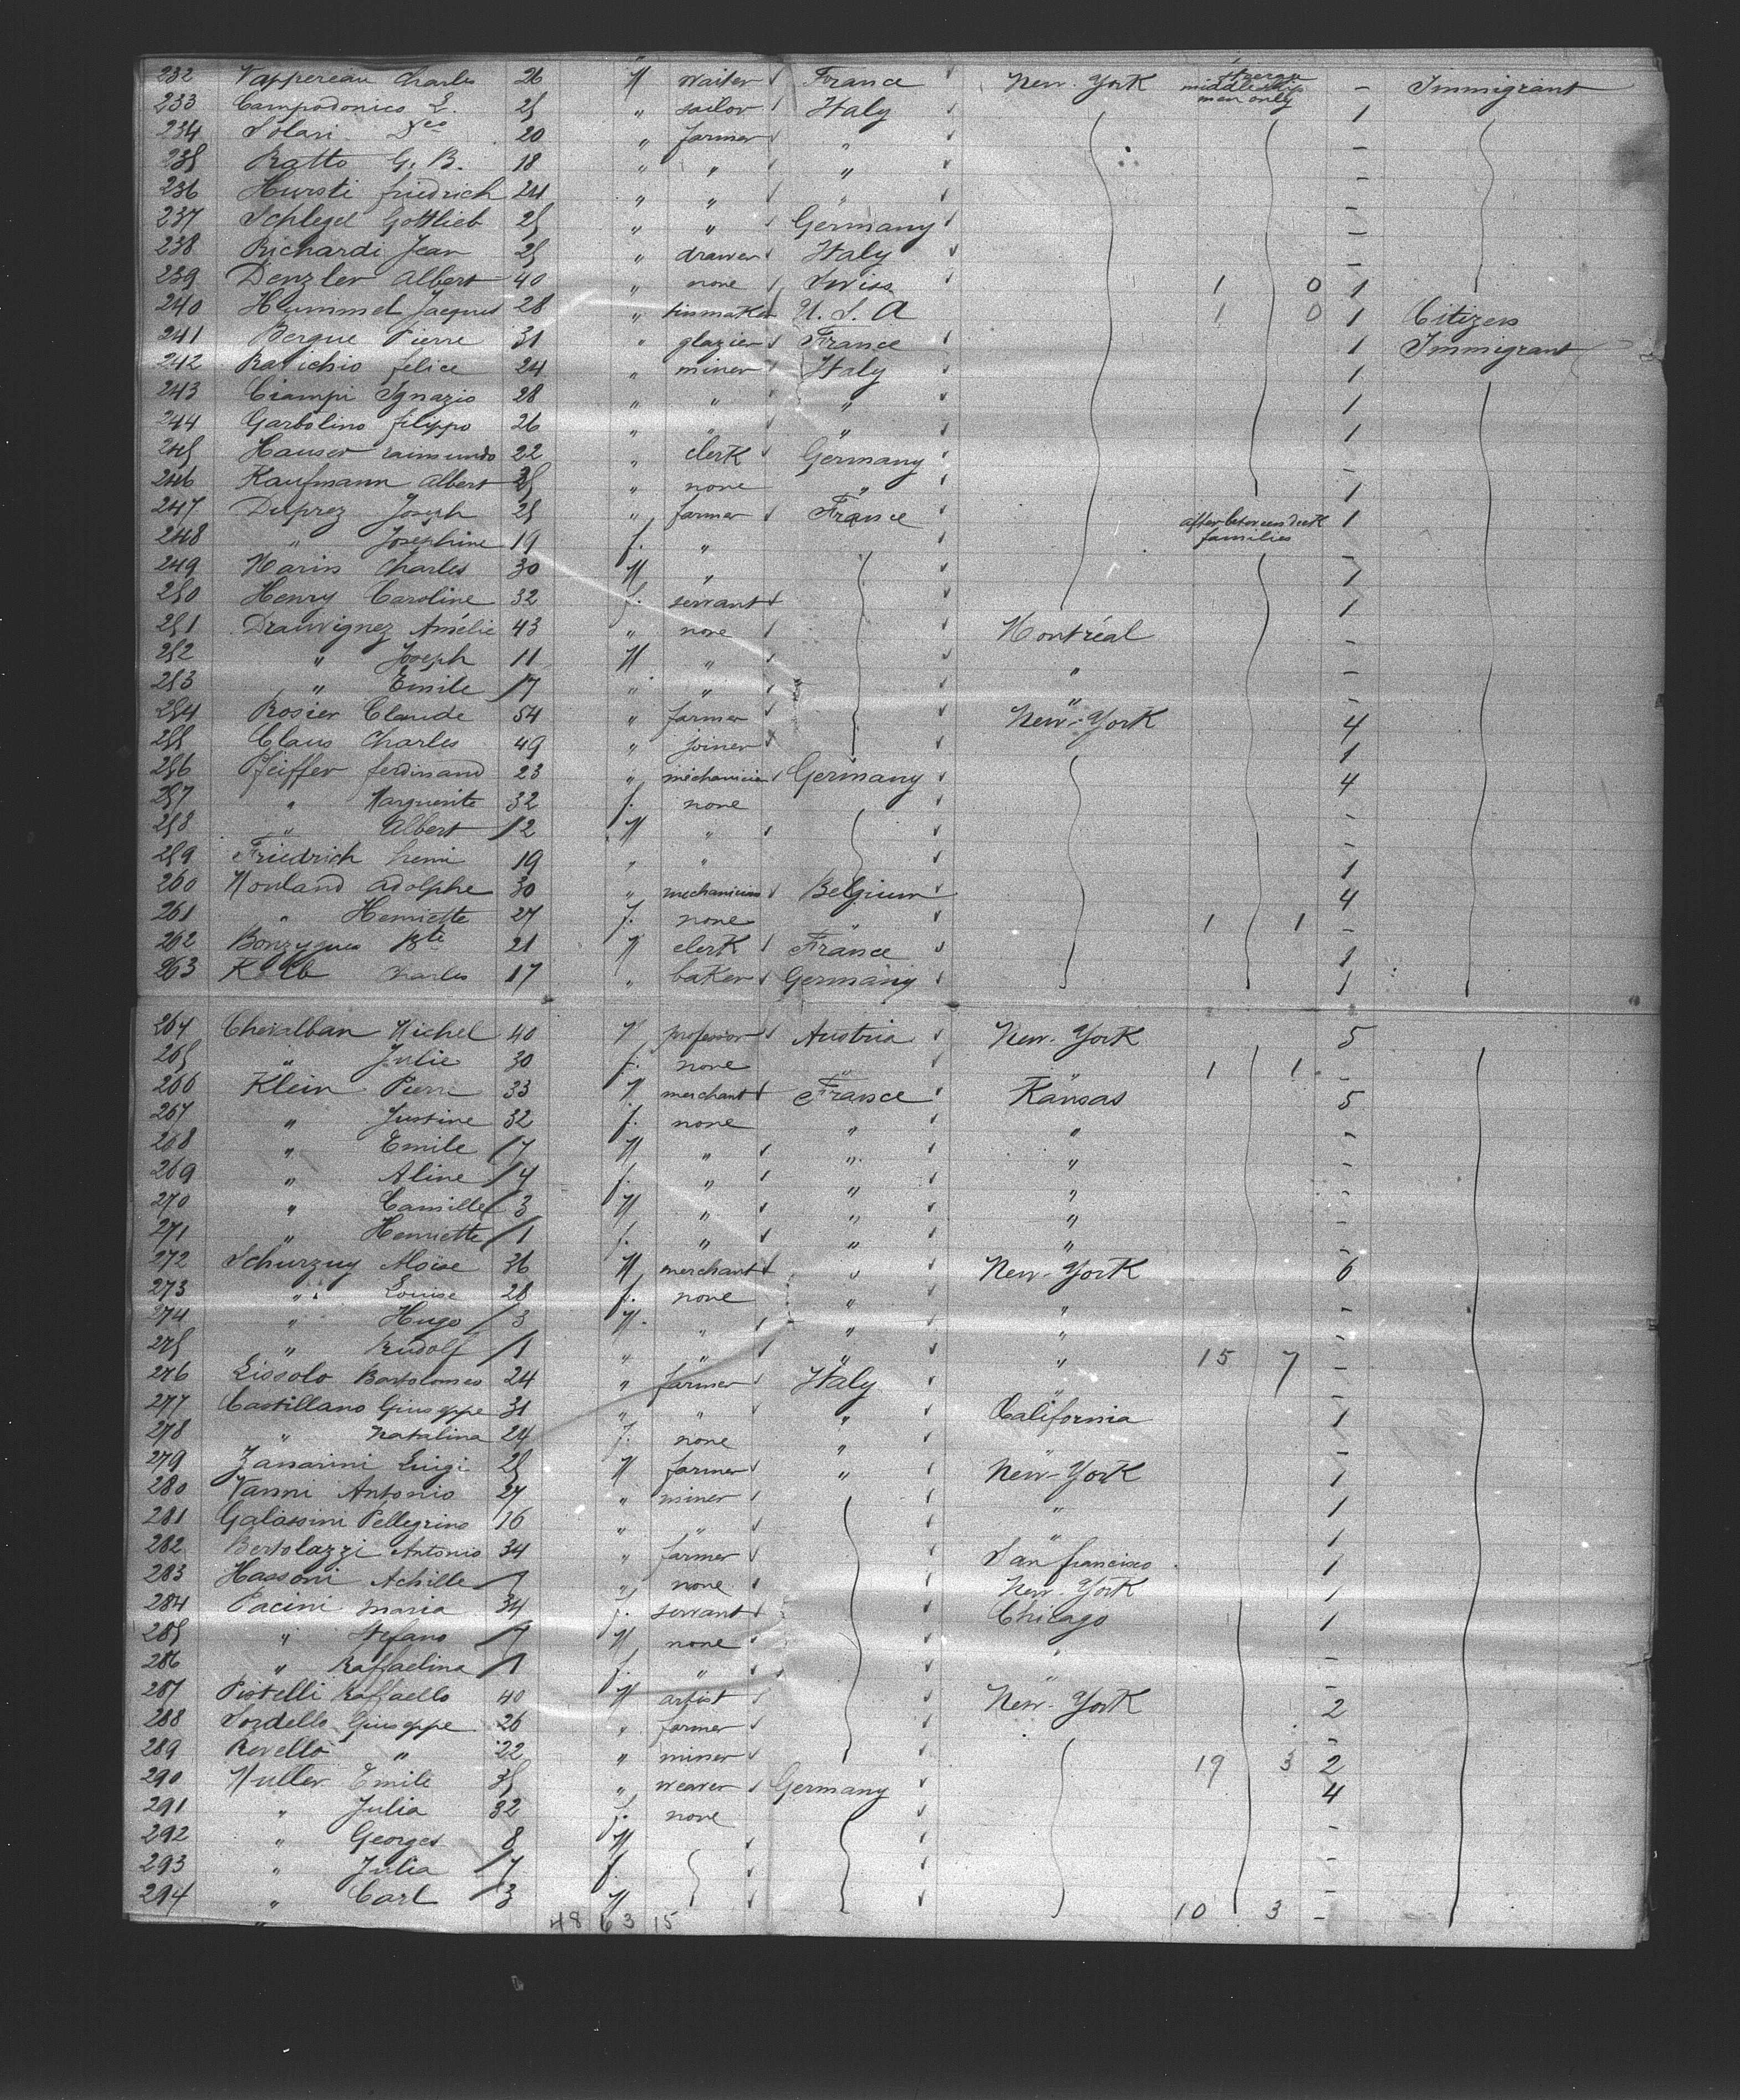 232 Vappereau Charles 26 M waiter France New-York Steerage middleship men only - Immigrant
233 Campodonico L. 25 " sailor Italy 1
234 Solari Dco 20 " farmer " -
235 Ratto G. B. 18 " " " -
236 Hursti friedrich 24 " " " -
237 Schlegel Gottlieb 25 " " Germany -
238 Richardi Jean 25 " drawer Italy -
239 Denzler Albert 40 " none Swiss 1 0 1
240 Hummel Jacques 28 " tinmaker U. S. A 1 0 1 Citizen
241 Bergue Pierre 31 " glazier France 1 Immigrant
242 Ratichio felice 24 " miner Italy 1
243 Ciampi Ignazio 28 " " " 1
244 Garbolino filippo 26 " " " 1
245 Hauser raimundo 22 " clerk Germany -
246 Kaufmann Albert 35 " none " 1
247 Duprez Joseph 25 " farmer France after between deck families 1
248 " Josephine 19 f. " -
249 Marin Charles 30 M " 1
250 Henry Caroline 32 f. servant 1
251 Drauvignez Amélie 43 " none Montréal -
252 " Joseph 11 M " " -
253 " Emile 7 " " " -
254 Rosier Claude 54 " farmer New-York 4
255 Claus Charles 49 " joiner 1
256 Pfeiffer ferdinand 23 " méchanicien Germany 4
257 " Marguerite 32 f. none -
258 " Albert 2 M " -
259 Friedrich henri 19 " " 1
260 Mouland Adolphe 30 " mechanicien Belgium 4
261 " Henriette 27 f. none " 1 1
262 Bonzygues Bte 21 M clerk France 1
263 Kolb Charles 17 " baker Germany 1
264 Chevalban Michel 40 M professor Austria New-York 5
265 " Julie 30 f. none " " 1 1 -
266 Klein Pierre 33 M. merchant France Kansas 5
267 " Justine 32 f. none " " -
268 " Emile 7 M " " " -
269 " Aline 4 f. " " " -
270 " Camille 3 M " " " -
271 " Henriette 1 f. " " " -
272 Schurzuy Moïse 36 M merchant " New-York 6
273 " Louise 28 f. none " " -
274 " Hugo 3 M. " " " -
275 " Rudolf 1 " " " " 15 7 -
276 Lissolo Bartolomeo 24 " farmer Italy "
277 Castillano Giuseppe 31 " " " California 1
278 " Natalina 24 f. none " " -
279 Zanarini Luigi 25 M farmer " New-York 1
280 Vanni Antonio 27 " miner " 1
281 Galassini Pellegrino 16 " " " 1
282 Bertolazzi Antonio 34 " farmer San francisco 1
283 Massoni Achille 7 " none New-York 1
284 Pacini Maria 34 f. servant Chicago 1
285 " Stefano 7 M none " -
286 " Raffaelina 1 f. " " -
287 Pistelli Raffaello 40 M artist New-York 2
288 Sordello Giuseppe 26 " farmer -
289 Revello " 22 " miner 19 3 2
290 Muller Emile 35 " weaver Germany 4
291 " Julia 32 f. none -
292 " Georges 8 M -
293 " Julia 7 f. -
294 " Carl 3 M 10 3 -
48 63 15